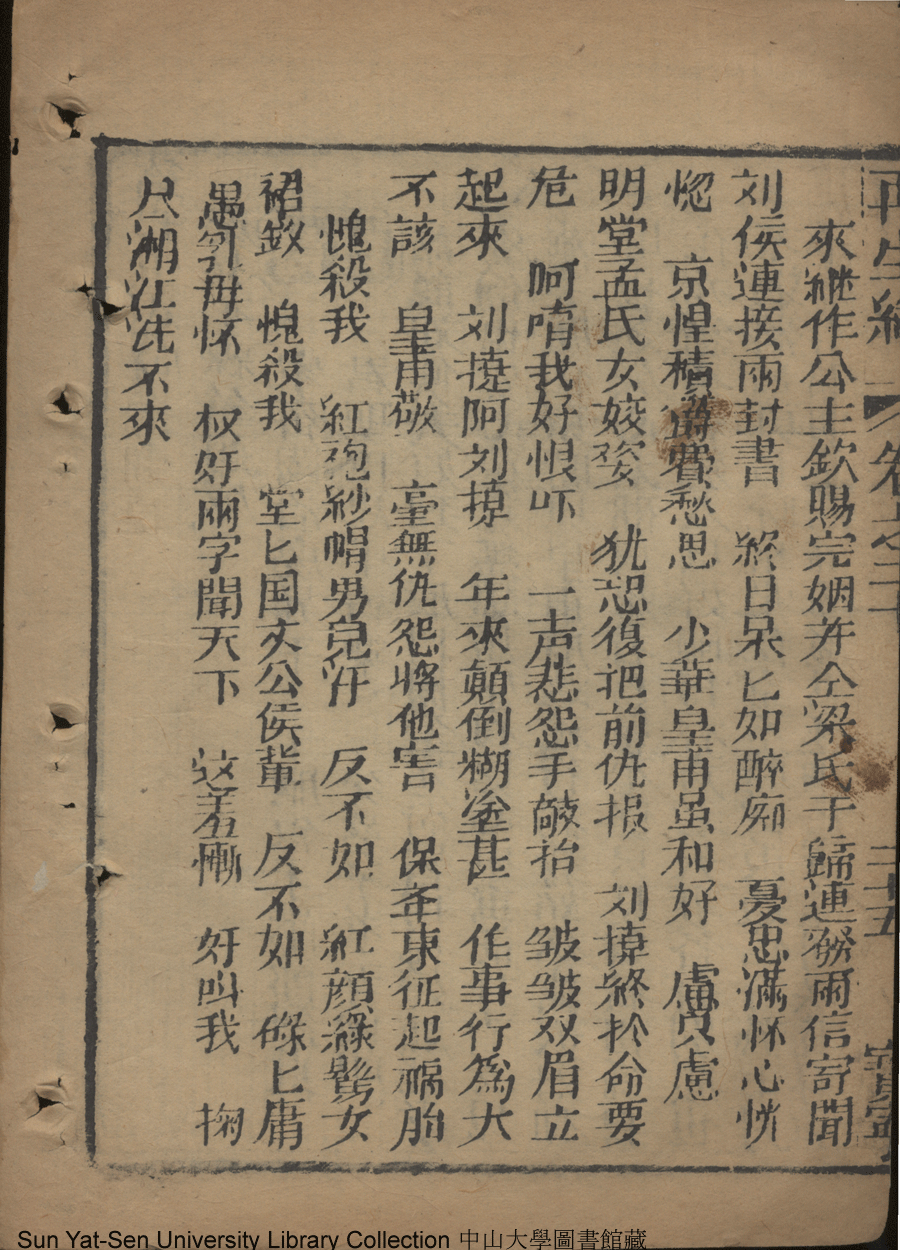 再生緣 卷之二十 三十五
來継作公主欽賜完姻并仝梁氏于歸連發兩信寄聞
刘侯連接兩封書 終日呆匕如醉痴 憂思滿怀心恍
惚 京惶積 費愁思 少華皇甫虽和好 慮只慮
明堂孟氏女姣姿 犹恐復把前仇报 刘㨗終於命要
危 呵唷我好恨吓 一声悲怨手敲抬 皱皱双眉立
起來 刘㨗阿刘㨗 年來顛倒糊塗甚 作事行為大
不該 皇甫敬 毫無仇怨將他害 保年東征起禍胎
愧殺我 紅袍紗帽男兒汗 反不如 紅顏綠鬓女
裙釵 愧殺我 堂匕国丈公侯軰 反不如 碌匕庸
愚 母怀 奸兩字聞天下 这羞慚 好叫我 掬
尽湘江洗不來
Sun Yat-Sen University Library Collection 中山大學圖書館藏